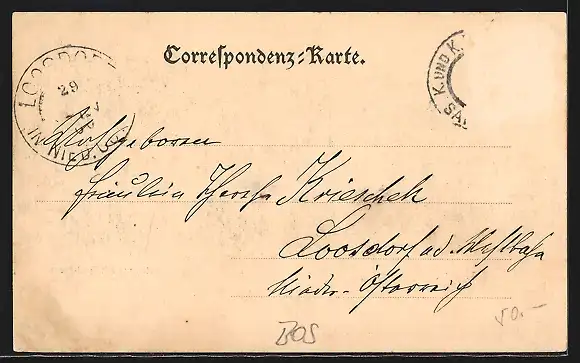 Correspondenz-Karte.
LOOSDORF
29
IN NIED. Ö
K. UND K.
SA
Wohlgeboren
Fräulein Krieschek
Loosdorf a.d. Westbahn
Nieder-Österreich
BOS
50.-